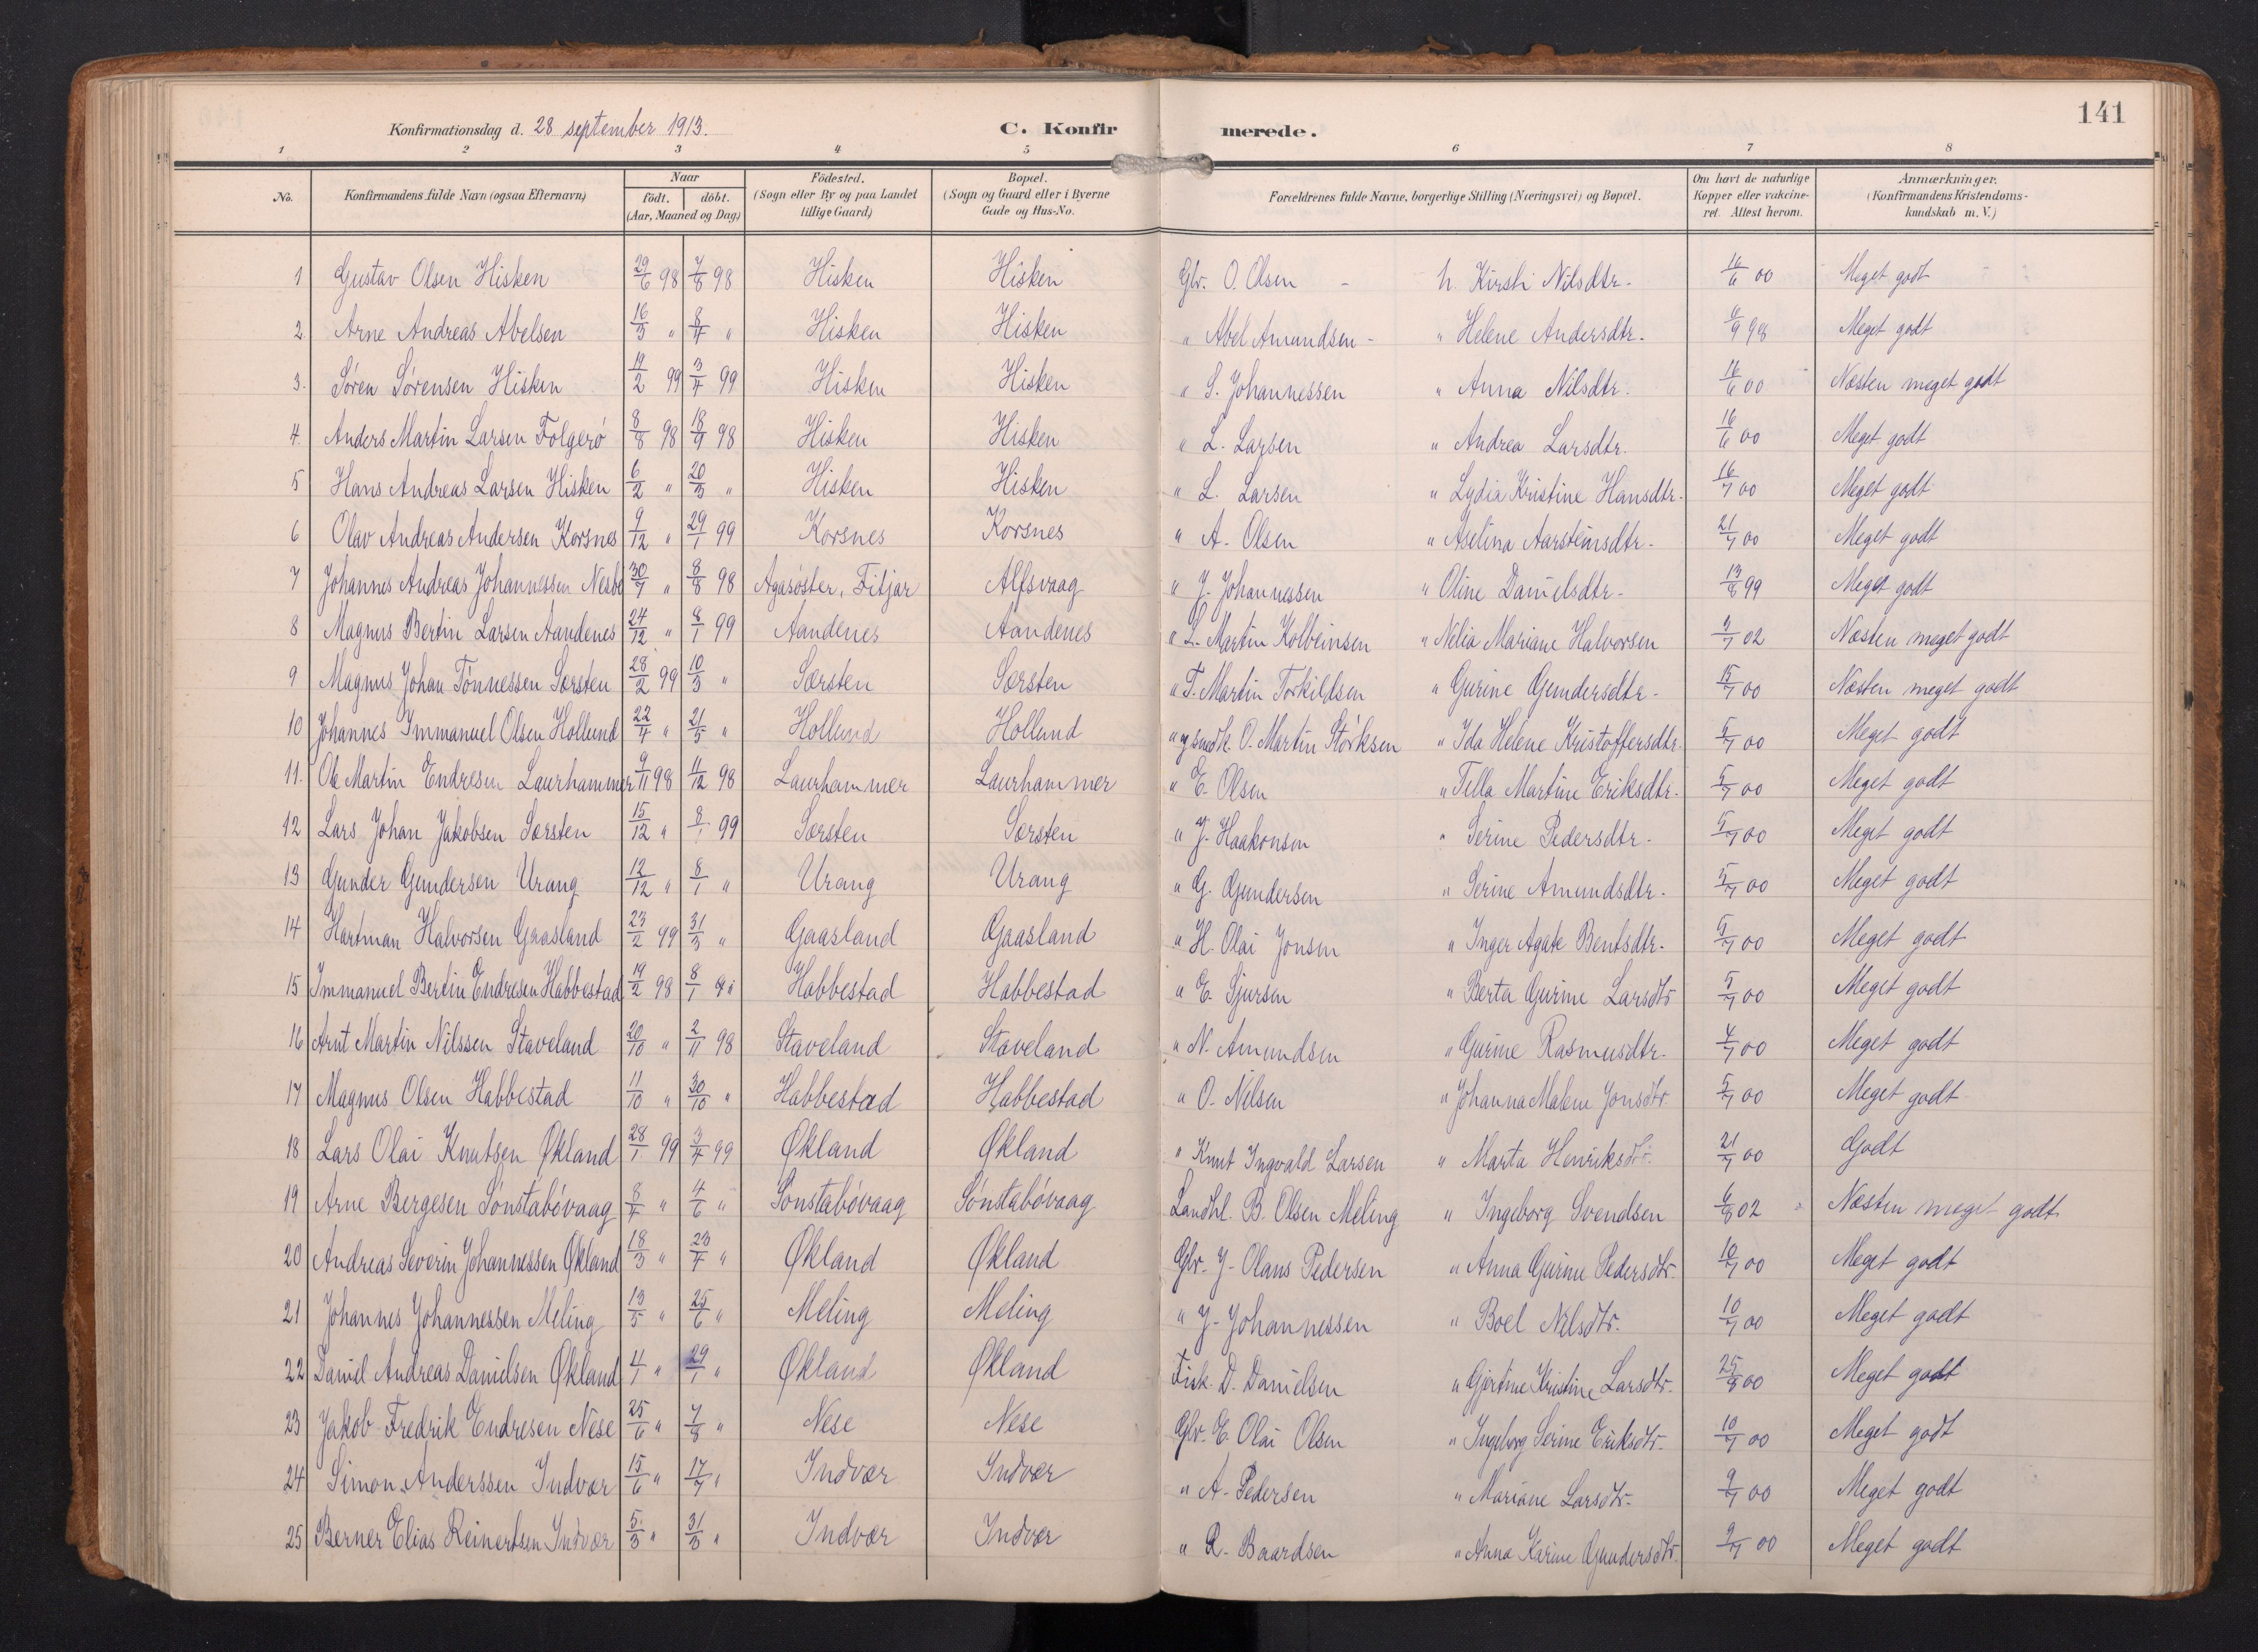 141
Konfirmationsdag d. 28 september 1913. C. Konfirmerede.
1 2 3 4 5 6 7 8
No. Konfirmandens fulde Navn (ogsaa Efternavn) Naar födt. döbt. (Aar, Maaned og Dag) Födested. (Sogn eller By og paa Landet tillige Gaard) Bopæl. (Sogn og Gaard eller i Byerne Gade og Hus-No. Forældrenes fulde Navne, borgerlige Stilling (Næringsvei) og Bopæl. Om havt de naturlige Kopper eller vakcineret. Attest herom. Anmærkninger. (Konfirmandens Kristendomskundskab m. V.)
1 Gustav Olsen Hisken 29/6 98 7/8 98 Hisken Hisken Gbr. O. Olsen - h. Kirsti Nilsdtr. 16/6 00 Meget godt
2. Arne Andreas Abelsen 16/3 " 8/4 " Hisken Hisken " Abel Amundsen - " Helene Andersdtr. 6/9 98 Meget godt
3. Sören Sörensen Hisken 19/2 99 3/4 99 Hisken Hisken " S. Johannessen " Anna Nilsdtr. 16/6 00 Næsten meget godt
4. Anders Martin Larsen Folgerö 8/8 98 18/9 98 Hisken Hisken " L. Larsen " Andrea Larsdtr. 16/6 00 Meget godt
5 Hans Andreas Larsen Hisken 6/2 " 20/3 " Hisken Hisken " L. Larsen " Lydia Kristine Hansdtr. 16/7 00 Meget godt
6 Olav Andreas Andersen Korsnes 9/12 " 29/1 99 Korsnes Korsnes " A. Olsen " Aselina Aarsteinsdtr. 21/7 00 Meget godt
7 Johannes Andreas Johannessen Nesbö 30/7 " 8/8 98 Agasöster, Fitjar Alfsvaag " J. Johannessen " Oline Danielsdtr. 13/8 99 Meget godt
8 Magnus Bertin Larsen Aandenes 24/12 " 8/1 99 Aandenes Aandenes " L. Martin Kolbeinsen " Nelia Mariane Halvorsen 3/7 02 Næsten meget godt
9 Magnus Johan Tönnessen Særsten 28/2 99 10/3 " Særsten Særsten " T. Martin Torkildsen " Gurine Gundersdtr. 15/7 00 Næsten meget godt
10 Johannes Immanuel Olsen Hollund 22/4 " 21/5 " Hollund Hollund " og smedh. O. Martin Störksen " Ida Helene Kristoffersdtr. 5/7 00 Meget godt
11. Ole Martin Endresen Laurhammer 9/11 98 11/12 98 Laurhammer Laurhammer " E. Olsen " Tella Martine Eriksdtr. 5/7 00 Meget godt
12 Lars Johan Jakobsen Særsten 15/12 " 8/1 99 Særsten Særsten " J. Haakonsen " Serine Pedersdtr. 5/7 00 Meget godt
13 Gunder Gundersen Urang 12/12 " 8/1 " Urang Urang " G. Gundersen " Serine Amundsdtr. 5/7 00 Meget godt
14 Hartman Halvorsen Graasland 23/2 99 31/3 " Gaasland Gaasland " H. Olai Jonsen " Inger Agate Bentsdtr. 5/7 00 Meget godt
15 Immanuel Bertin Endresen Habbestad 19/2 98 8/1 Habbestad Habbestad " E. Sjursen " Berta Gurine Larsdtr 5/7 00 Meget godt
16 Arnt Martin Nilssen Staveland 20/10 " 2/11 98 Staveland Staveland " N. Amundsen " Gurine Rasmusdtr. 4/7 00 Meget godt
17 Magnus Olsen Habbestad 11/10 " 30/10 " Habbestad Habbestad " O. Nilsen " Johanna Malene Jonsdtr. 5/7 00 Meget godt
18 Lars Olai Knutsen Økland 28/1 99 3/4 99 Økland Økland " Knut Ingvald Larsen " Marta Henriksdtr. 21/7 00 Godt
19 Arne Bergesen Sönstabövaag 8/4 " 4/6 " Sönstabövaag Sönstabövaag Landhl. B. Olsen Meling " Ingeborg Svendsen 6/8 02 Næsten meget godt
20 Andreas Severin Johannessen Økland 18/3 " 23/4 " Økland Økland Gbr. J. Olaus Pedersen " Anna Gurine Pedersdtr. 10/7 00 Meget godt
21 Johannes Johannessen Meling 13/5 " 25/6 " Meling Meling " J. Johannessen " Boel Nilsdtr. 10/7 00 Meget godt
22 Daniel Andreas Danielsen Økland 4/1 " 29/1 " Økland Økland Fisk. D. Danielsen " Gjertine Kristine Larsdtr. 25/8 00 Meget godt
23 Jakob Fredrik Endresen Nese 25/6 " 7/8 " Nese Nese Gbr. E. Olai Olsen " Ingeborg Serine Eriksdtr. 10/7 00 Meget godt
24 Simon Anderssen Indvær 15/6 " 17/7 " Indvær Indvær " A. Pedersen " Mariane Larsdtr. 9/7 00 Meget godt
25 Berner Elias Reinertsen Indvær 5/3 " 31/3 " Indvær Indvær " R. Baardsen " Anna Karine Gundersdtr. 9/7 00 Meget godt